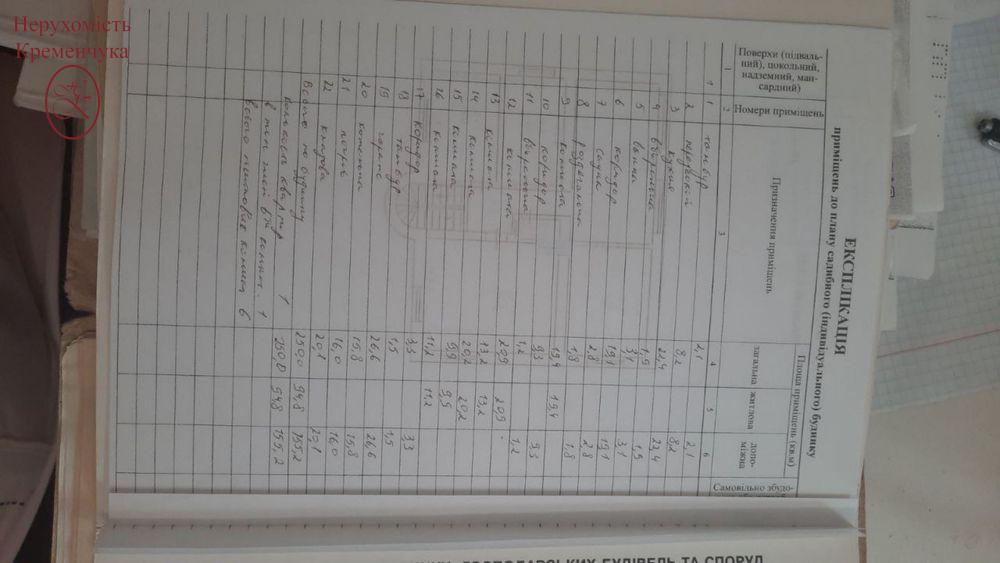 Нерухомість
Кременчука
ЕКСПЛІКАЦІЯ
приміщень до плану садибного (індивідуального) будинку
Поверхи (підваль-
ний), цокольний,
надземний, ман-
сардний)
Номери приміщень
Призначення приміщень
Площа приміщень (кв.м)
загальна
житлова
допо-
міжна
Самовільно збудо-
1 2 3 4 5 6
1 1 тамбур 2,1 2,1
2 8,2 8,2
3 кухня 22,4 22,4
4 вбиральня 1,5 1,5
5 ванна 3,1 3,1
6 коридор 19,1 19,1
7 сауна 2,8 2,8
8 роздягальня 1,8 1,8
9 кімната 19,4 19,4
10 коридор 9,3 9,3
11 вбиральня 1,2 1,2
12 кімната 20,9 20,9
13 кімната 13,2 13,2
14 кімната 20,2 20,2
15 кімната 9,9 9,9
16 кімната 11,2 11,2
17 коридор 3,3 3,3
18 тамбур 1,5 1,5
19 гараж 26,6 26,6
20 котельня 15,8 15,8
21 погріб 16,0 16,0
22 кладова 20,1 20,1
Всього по будинку 250,0 94,8 155,2
кількість квартир 1 250,0 94,8 155,2
в тому числі 1
всього житлових кімнат 6
ГОСПОДАРСЬКИХ БУДІВЕЛЬ ТА СПОРУД